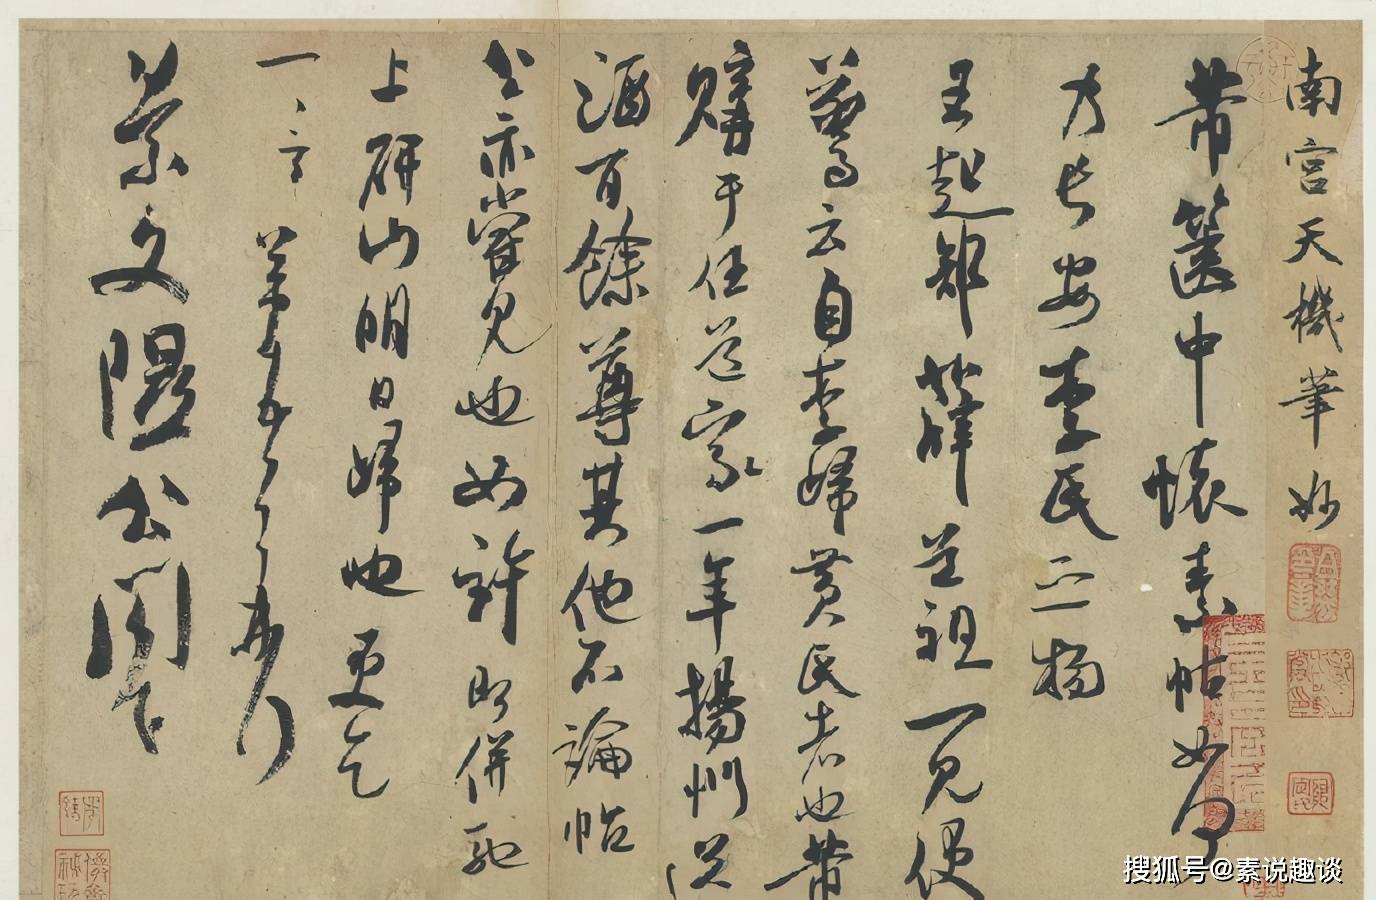 南宮天機筆妙
芾篋中懷素帖如何
乃長安李氏之物
王起部薛道祖一見便
驚云自李歸黃氏者也芾
購于任道家一年揚州送
酒百餘尊其他不論帖
公亦嘗見也如許即併馳
上研山明日歸也更乞
一言芾頓首再拜
景文隰公閣下
搜狐号@素说趣谈